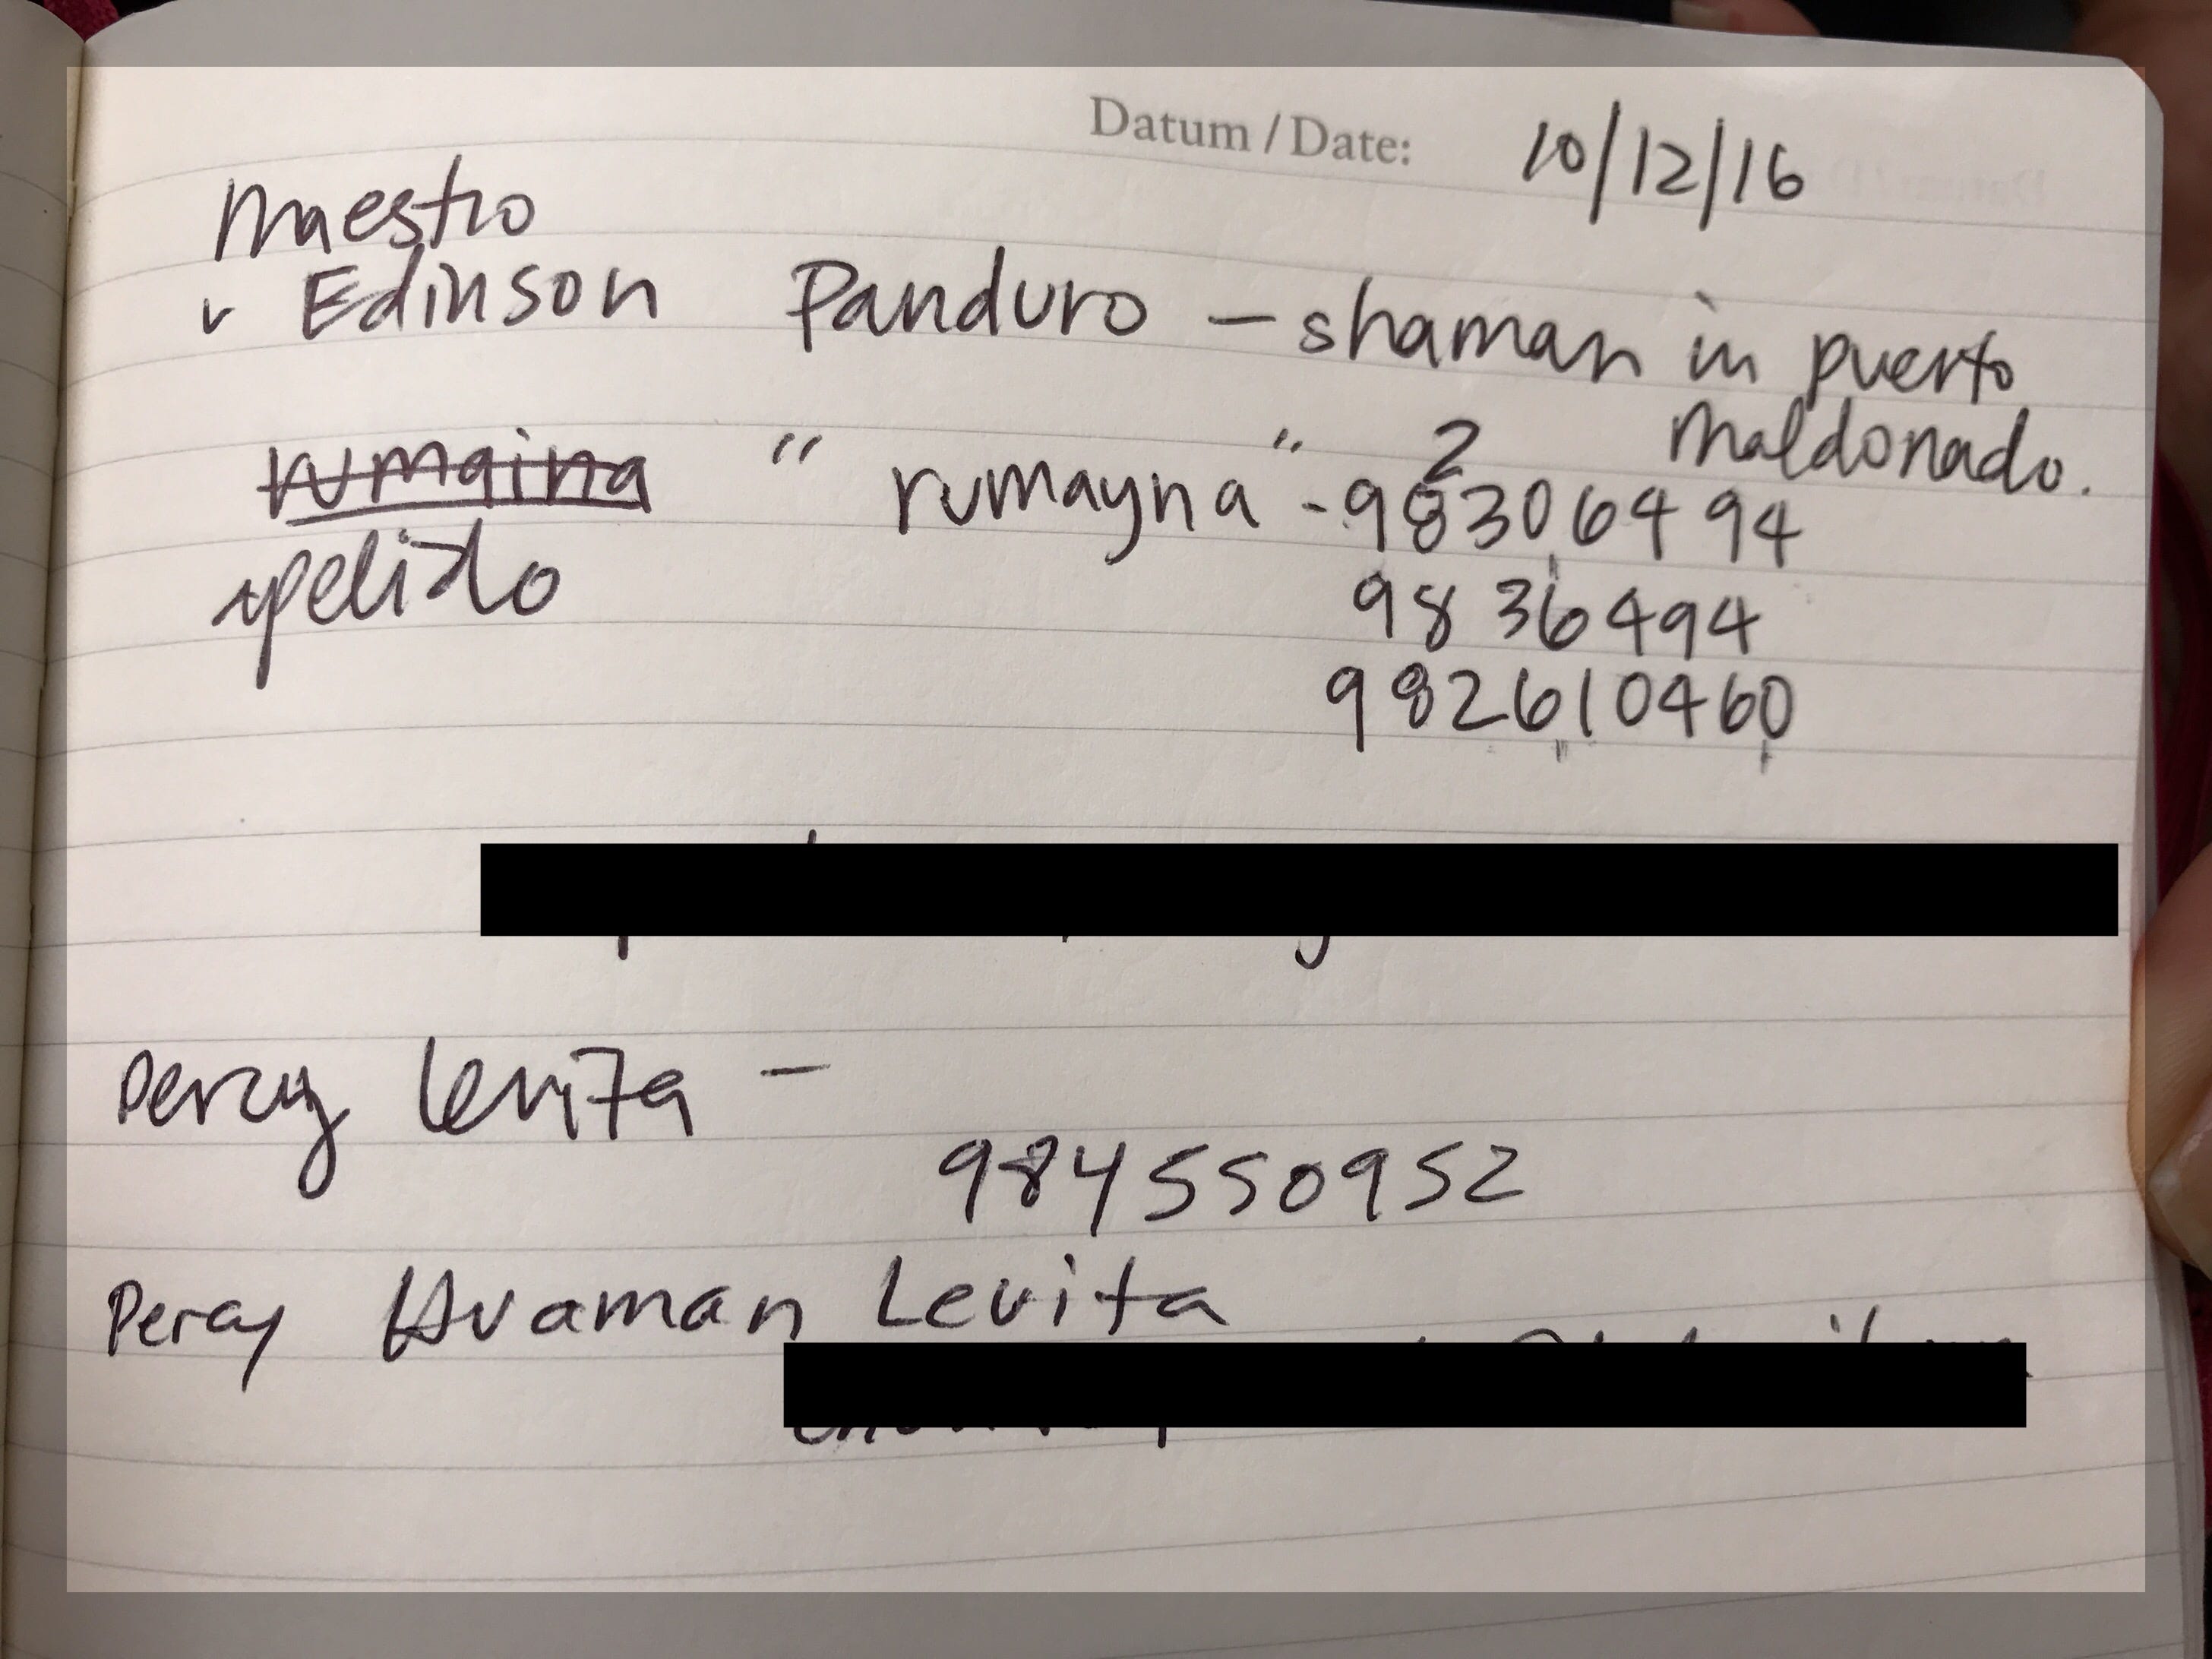 Datum / Date: 10/12/16
Maestro
Edinson Panduro – shaman in puerto
maldonado.
rumaina " rumayna " - 983064 94
2
98 36494
982610460
percy levita –
984550952
Percy Huaman Levita